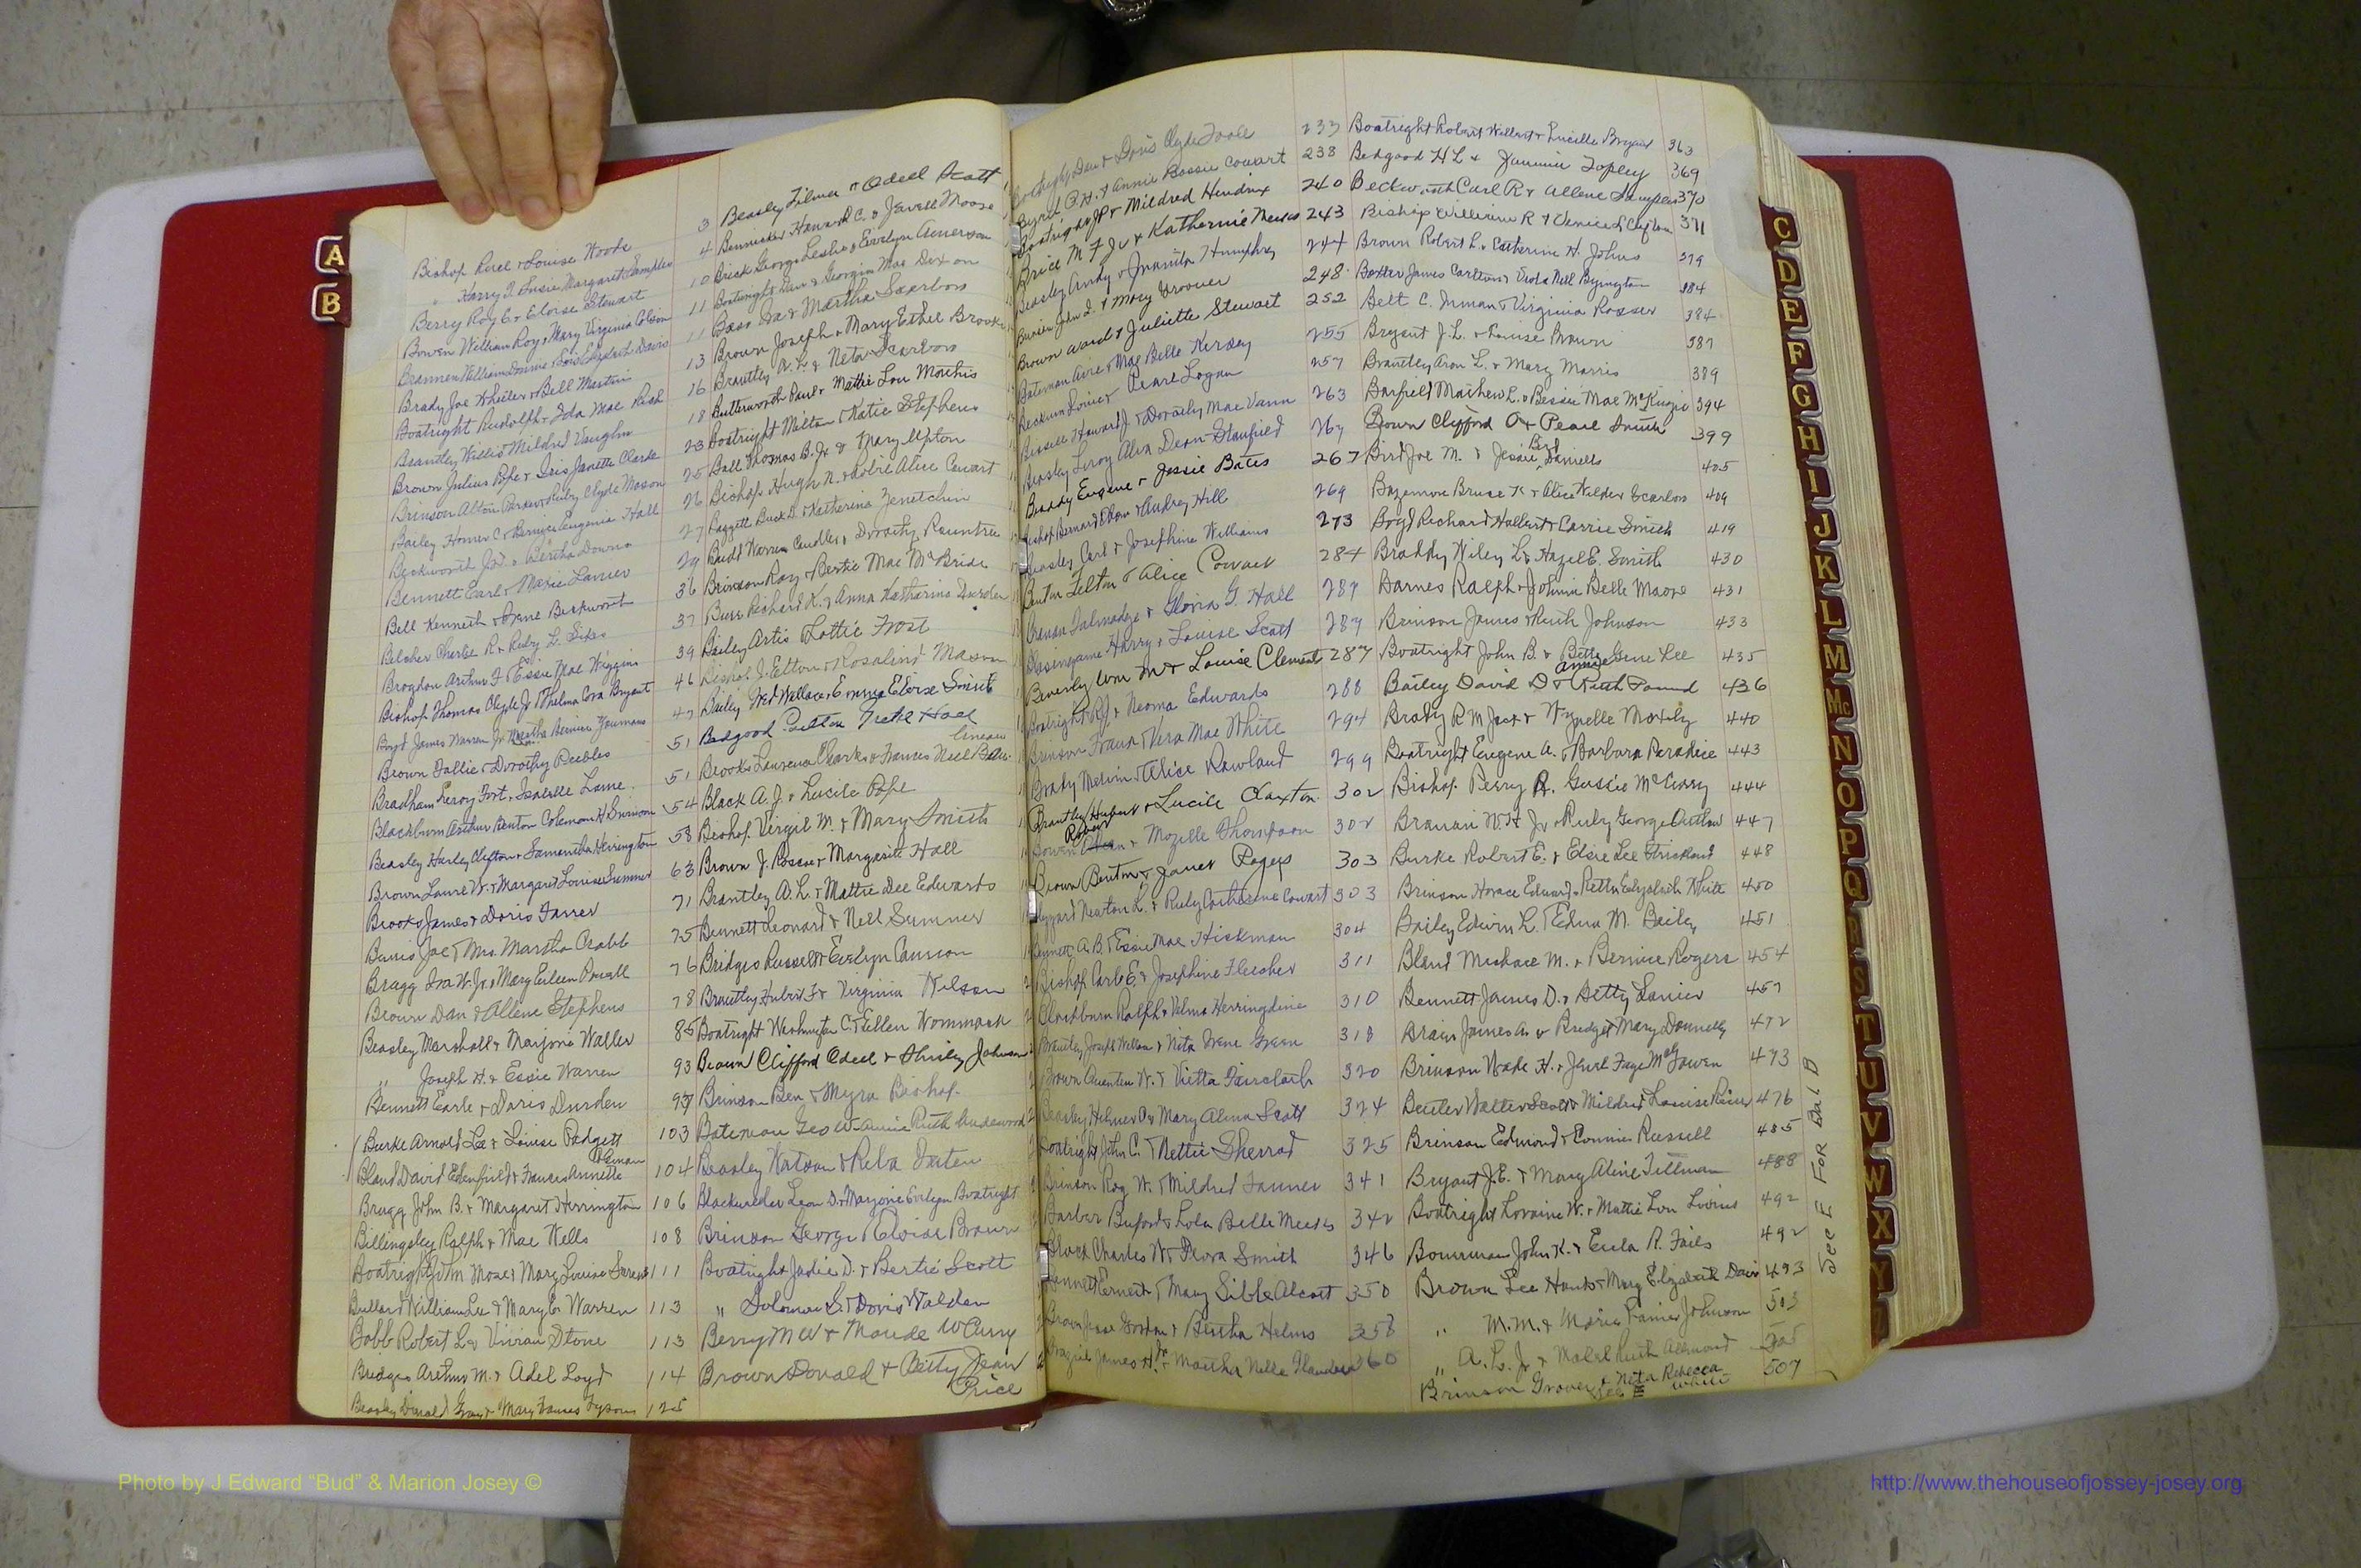 A
B
Bishop Rural & Louise Woods 3
" Harry J. Susie Margaret Samples 4
Berry Roy E & Eloise Stewart 10
Bowen William Roy & Mary Virginia Colson 11
Brannen William Donnie & Lois Elizabeth Davis 11
Brady Joe Wheeler & Bell Martin 13
Boatright Rudolph & Ida Mae Rich 16
Brantley Willis Mildred Vaughn 18
Brown Julius Pope & Iris Janette Clarke 23
Brinson Alton Parker & Ruby Clyde Mason 25
Bailey Homer C & Bernice Eugenia Hall 26
Beckworth J.D. & Bertha Downs 27
Bennett Earl & Maxie Lanier 29
Bell Kenneth & Beckworth 36
Belcher Charlie R & Ruby L. Sikes 37
Brogdon Arthur J & Essie Mae Wiggins 39
Bishop Thomas Clyde Jr & Thelma Cora Bryant 46
Boyd James Warren Jr Martha Bernice Youmans 47
Brown Dallie & Dorothy Peebles 51
Bradham Leroy Fort & Isabelle Lane 51
Blackburn Arthur Benton Coleman H Durden 54
Beasley Harley Clifton & Samantha Herrington 58
Brown Laurie W. & Margaret Louise Sumner 63
Brooks James & Doris Farrer 71
Bemis Joe & Mrs. Martha Crabb 75
Bragg Ira W. Jr. & Mary Eileen Powell 76
Brown Dan & Allene Stephens 78
Beasley Marshall & Marjorie Waller 85
" Joseph H. & Essie Warren 93
Bennett Earle & Doris Durden 97
Burke Arnold Lee & Louise Padgett 103
Bland David Edenfield & Frances Annette 104
Bragg John B. & Margaret Herrington 106
Billingsley Ralph & Mae Wells 108
Boatright Jim Mose & Mary Louise 111
Bullard William Lee & Mary E. Warren 113
Bobb Robert L & Vivian Stone 113
Bridges Arthur M. & Adel Loyd 114
Beasley Donald Gray & Mary Frances Tyson 125
Beasley Zilmer & Odell Scott
Bennicker Howard C. & Jewell Moore
Brick George Leslie & Evelyn Amerson
Boatwright & Georgia Mae Dixon
Bass & Martha Scarboro
Brown Joseph & Mary Esther Brooks
Brantley A. L. & Neta Scarboro
Butterworth Paul & Mattie Lou Morris
Boatright Milton & Katie Stephens
Ball Thomas B. Jr & Mary Upton
Bishop Hugh N. & Robie Alice Cowart
Baggett Buck D. & Katherine
Baird Warren Candler & Dorothy Rountree
Brinson Roy & Bertie Mae McBride
Burr Richard K. & Anna Katharine Durden
Bailey Artis & Lottie Frost
Bishop J. Elton & Rosalind Mason
Bailey Fred Wallace & Emma Eloise Smith
Bedgood Hall
Brooks Laurence Charles & Frances Nell
Black A. J. & Lucile Pope
Bishop Virgil M. & Mary Smith
Brown J. Roscoe & Margarite Hall
Brantley A. L. & Mattie Dee Edwards
Bennett Leonard & Nell Sumner
Bridges Russell & Evelyn Cannon
Brantley Hubert F & Virginia Wilson
Boatright Washington C. & Ellen Wommack
Brown Clifford Odell & Shirley Johnson
Brinson Ben & Myra Bishop
Bateman Geo W. Annie Ruth Underwood
Beasley Watson & Reba
Blackwelder Leon D. & Marjorie Evelyn Boatright
Brinson George & Eloise Brown
Boatright Judie D. & Bertie Scott
" Solomon S. & Doris Walden
Berry M W & Maude McCurry
Brown Donald & Betty Jean
Price
Boatright Dan & Doris Clyde Toole 233
Byrd P. H. & Annie Bessie Cowart 238
Boatright J P & Mildred Hendrix 240
Brice M F Jr & Katherine Meeks 243
Beasley & Juanita Humphrey 244
John L. & Mary Hoover 248
Brown Ward & Juliette Stewart 252
Bateman & Mae Belle Kersey 255
Beckum & Pearl Logan 257
Howard J. & Dorothy Mae Vann 263
Beasley Leroy Alva Dean Stanfield 267
Braddy Eugene & Jessie Bates 267
Bishop Bernard Ethan & Audrey Hill 269
Beasley Carl & Josephine Williams 273
Benton Felton & Alice Cowart 284
Talmadge & Gloria G. Hall 287
Blasingame Harry & Louise Scott 287
Beverly Wm M & Louise Clements 287
Boatright R.J. & Neoma Edwards 288
Brinson Frank & Vera Mae White 294
Brady Melvin & Alice Rowland 299
Brantley Hubert & Lucile Claxton 302
Bowen Robert & Mozelle Thompson 302
Brown Benton & Janet Rogers 303
Newton L. & Ruby Catherine Cowart 303
Bennett A. B. & Essie Mae Hickman 304
Bishop Carl E & Josephine Fletcher 311
Blackburn Ralph & Velma Herringdine 310
Brantley Joseph William & Nita Irene Green 318
Brown Quenten W. & Vietta Faircloth 320
Beasley Helmer O & Mary Alma Scott 324
Boatright John C. & Nettie Sherrod 325
Brinson Roy W. & Mildred Tanner 341
Barber Buford & Lola Belle Meeks 342
Black Charles W & Flora Smith 346
Bennett Ernest & Mary Sibble Alcott 350
Brown Jesse Gordon & Bertha Helms 358
James H. Jr. & Martha Nelle Flanders 360
Boatright Robert Willard & Lucille Bryant 363
Bedgood H L & Jimmie Topley 369
Beckworth Carl R & Allene Sample 370
Bishop William R & Venice L Clifton 371
Brown Robert L. & Catherine H. Johns 379
Baxter James Carlton & Veda Nell Byington 384
Belt C. Inman & Virginia Rosser 384
Bryant J. L. & Louise Brown 387
Brantley Aron L. & Mary Morris 389
Barfield Mathew L. & Bessie Mae McKinzie 394
Brown Clifford O & Pearl Smith 399
Bird Joe M. & Jessie Bird Daniells 405
Bazemore Bruce K & Alice Wilder Scarboro 409
Boyd Richard Halbert & Carrie Smith 419
Braddy Wiley L & Hazel E. Smith 430
Barnes Ralph & Johnnie Belle Moore 431
Brinson James & Ruth Johnson 433
Boatright John B. & Betty Gene Lee 435
Bailey David D & Annie Ruth Pound 436
Brady R M Jack & Wynelle Mosely 440
Boatright Eugene A. & Barbara Paradice 443
Bishop Perry R. Gussie McCurry 444
Branan W. H Jr & Ruby George Outlaw 447
Burke Robert E. & Elsie Lee Strickland 448
Brinson Horace Edward & Retta Elizabeth White 450
Bailey Edwin L. & Edna M. Bailey 451
Bland Michael M. & Bernice Rogers 454
Bennett James D. & Betty Lanier 457
James A. & Bridget Mary Donnelly 472
Brinson Wade H. & Jewel Faye McGowen 473
Butler Walter Scott & Mildred Louise 476
Brinson Edmond & Connie Russell 485
Bryant J. E. & Mary Aline Tillman 488
Boatright Loraine W. & Mattie Lou Livins 492
Bowman John K. & Eula R. Fails 492
Brown Lee Hank & Mary Elizabeth Davis 493
" M. M. & Maria Fannie Johnson 503
" A. L. Jr & Mabel Ruth Allmond 505
Brinson Grover & Neta Rebecca White 507
See E FOR Bal B
C
D
E
F
G
H
I
J
K
L
M
Mc
N
O
P
Q
R
S
T
U
V
W
X
Y
Photo by J Edward “Bud” & Marion Josey ©
http://www.thehouseofjossey-josey.org